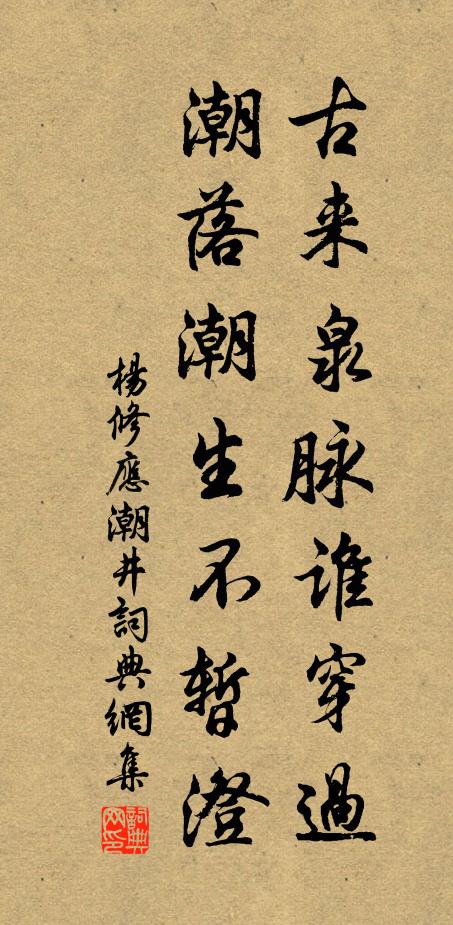 古来泉脉誰穿過
潮落潮生不暫澄
楊修應潮井詞典網集
詞典网印